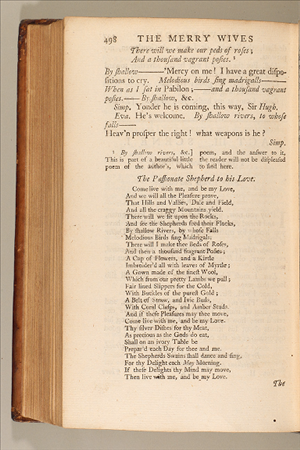 498 THE MERRY WIVES
There will we make our peds of roses;
And a thousand vagrant posies.¹
By shallow——'Mercy on me! I have a great dispo-
sitions to cry. Melodious birds sing madrigalls——
When as I sat in Pabilon;——and a thousand vagrant
posies.——By shallow, &c.
Simp. Yonder he is coming, this way, Sir Hugh.
Eva. He's welcome. By shallow rivers, to whose
falls——
Heav'n prosper the right! what weapons is he?
Simp.
¹ By shallow rivers, &c.]
This is part of a beautiful little
poem of the author's, which
poem, and the answer to it,
the reader will not be displeased
to find here.
The Passionate Shepherd to his Love.
Come live with me, and be my Love,
And we will all the Pleasures prove,
That Hills and Vallies, Dale and Field,
And all the craggy Mountains yield.
There will we sit upon the Rocks,
And see the Shepherds feed their Flocks,
By shallow Rivers, by whose Falls
Melodious Birds sing Madrigals:
There will I make thee Beds of Roses,
And then a thousand fragrant Posies;
A Cap of Flowers, and a Kirtle
Imbroider'd all with leaves of Myrtle;
A Gown made of the finest Wool,
Which from our pretty Lambs we pull;
Fair lined Slippers for the Cold,
With Buckles of the purest Gold;
A Belt of Straw, and Ivie Buds,
With Coral Clasps, and Amber Studs.
And if these Pleasures may thee move,
Come live with me, and be my Love.
Thy silver Dishes for thy Meat,
As precious as the Gods do eat,
Shall on an ivory Table be
Prepar'd each Day for thee and me.
The Shepherds Swains shall dance and sing,
For thy Delight each May Morning.
If these Delights thy Mind may move,
Then live with me, and be my Love.
The